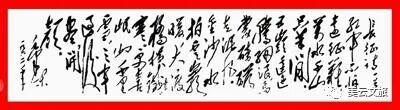 长征诗一首
红军不怕
远征难
万水千山
只等闲
五岭逶迤
腾细浪乌蒙
磅礴
走泥丸
金沙水
拍云崖
暖大渡
桥横铁索
寒更喜
岷山千里
雪三军
过后
尽开
颜
毛泽东
美云文旅